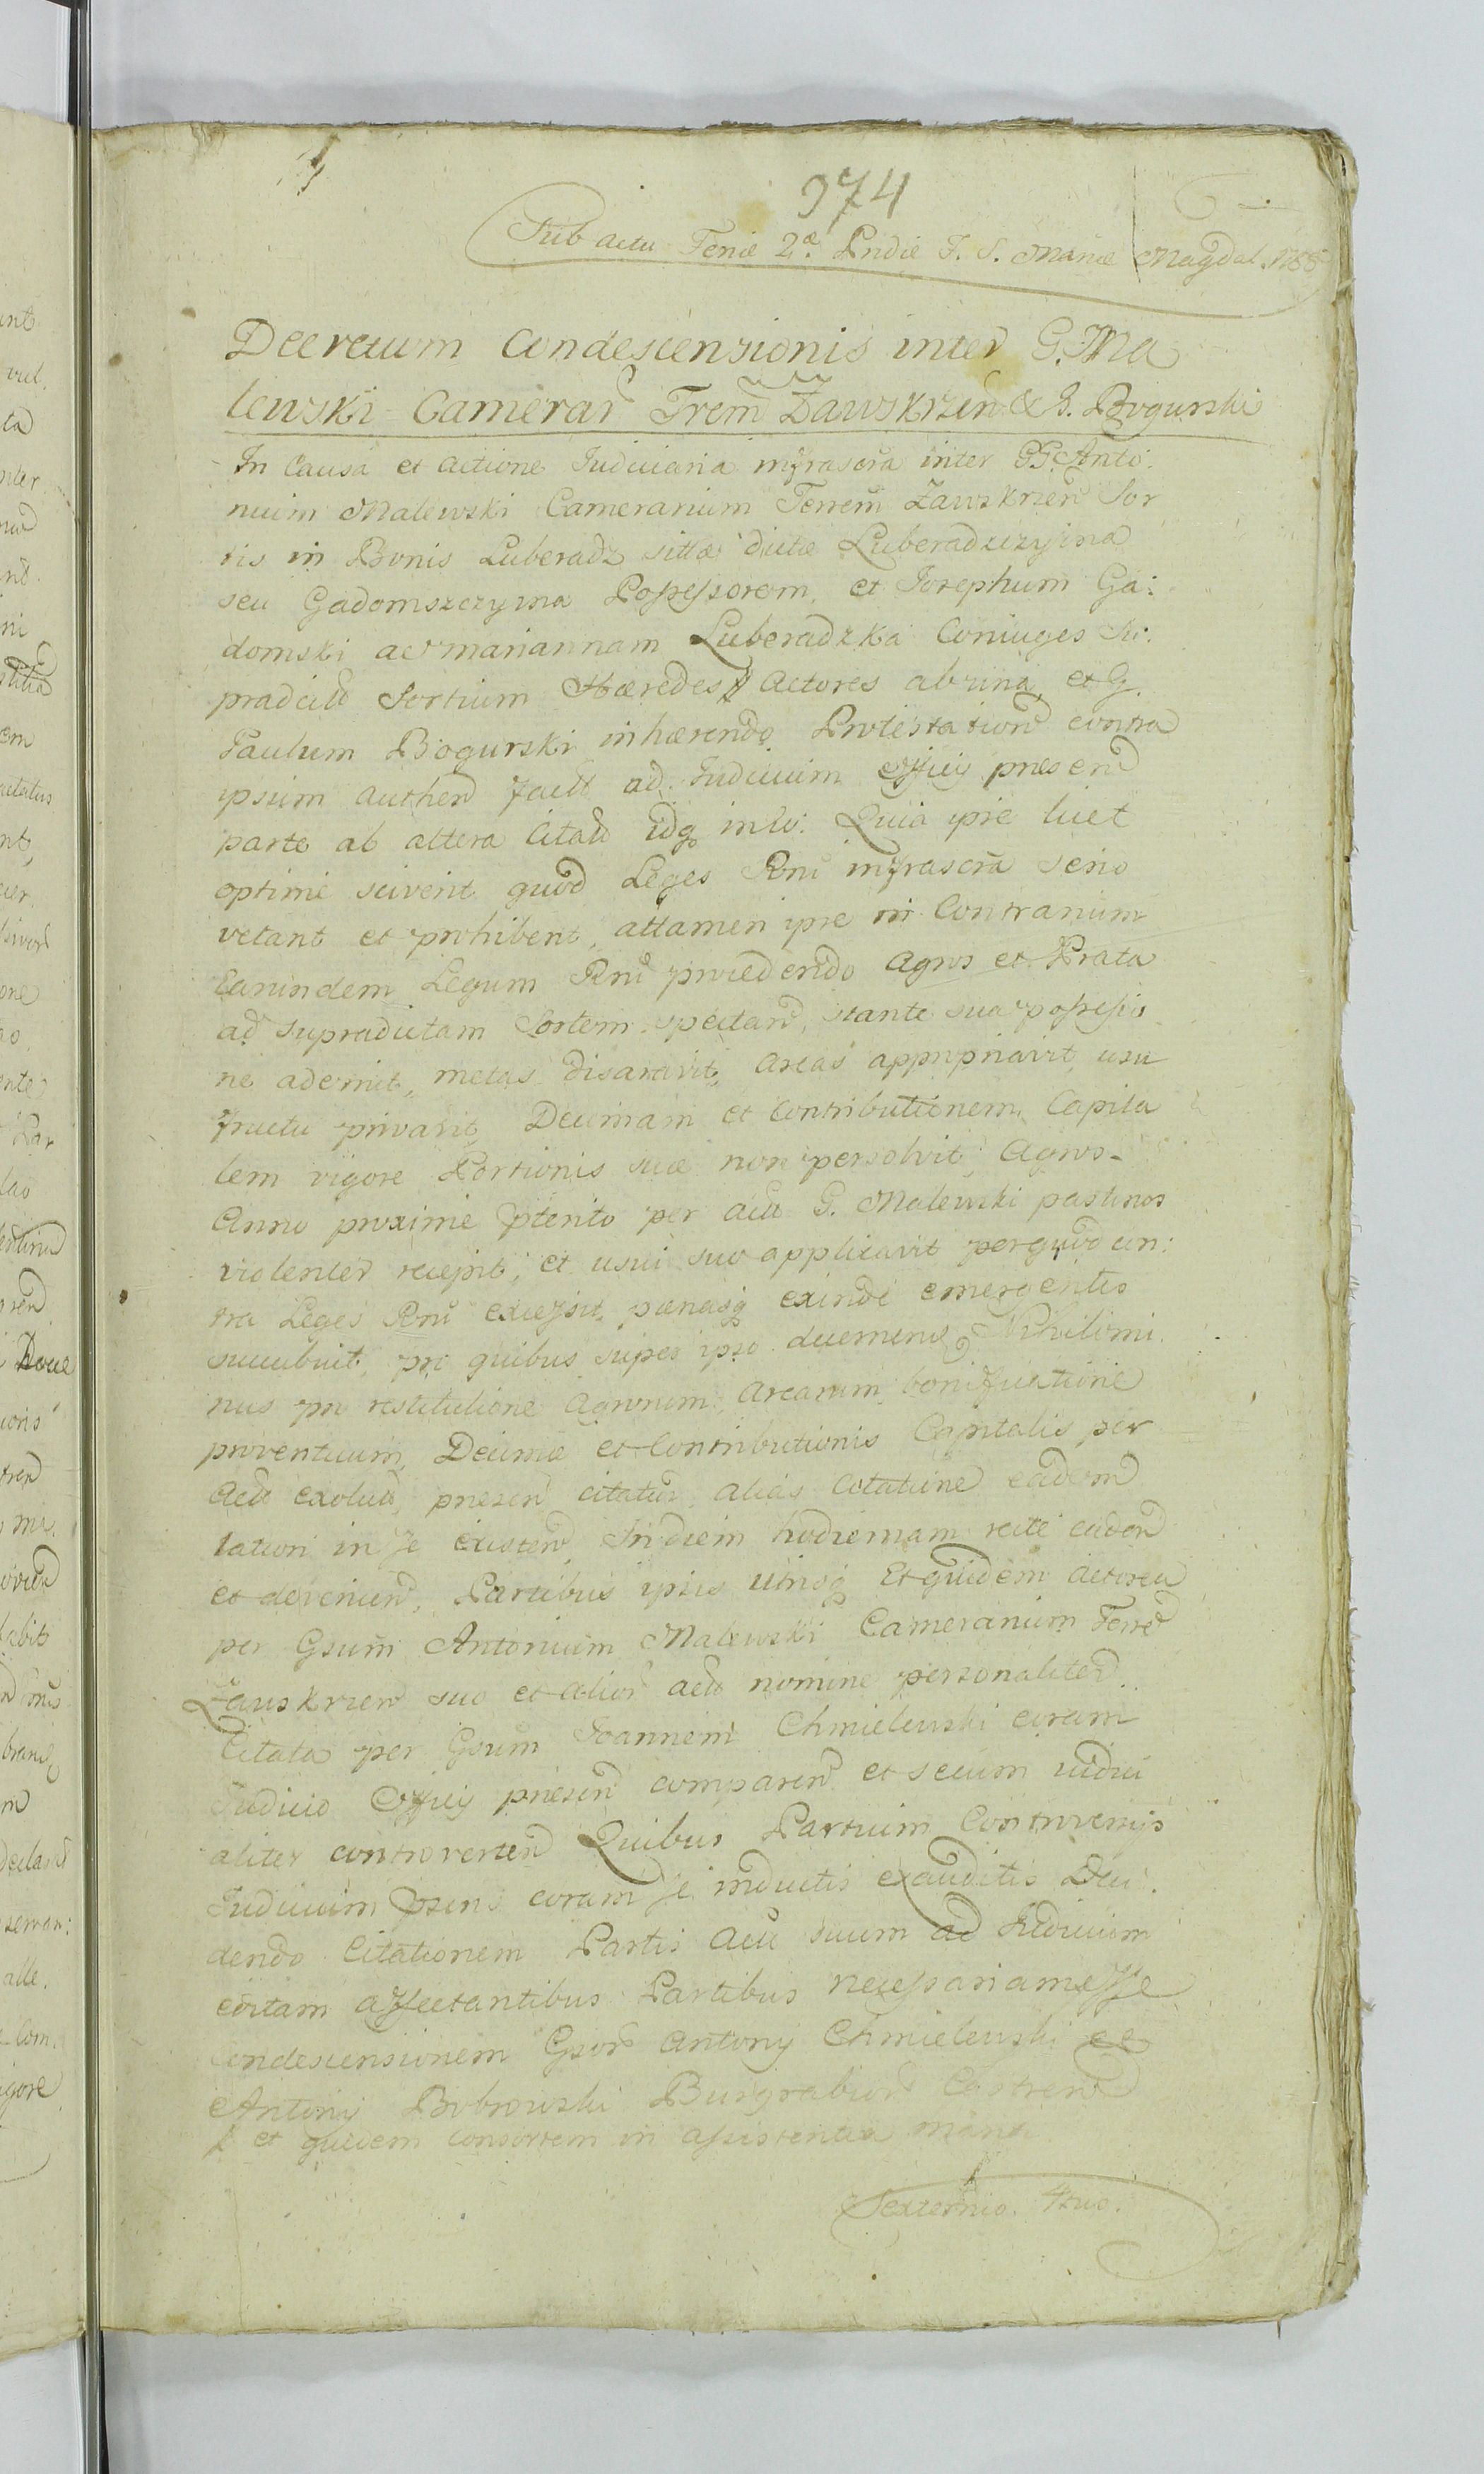 974
Sub actu Feriæ 2æ Pridie F. S. Mariæ Magdal. 1788
Decretum Condescensionis inter G. Ma
lewski Camerar Trem Zawskrzen & G. Bogurski
In Causa et Actione Iudiciaria infrascra inter GG. Anto:
nium Malewski Camerarium Terrem Zawskrzen Sor
tis in Bonis Luberadz sittæ dictæ Luberadzczyzna
seu Gadomszczyzna Possessorem, et Josephum Ga:
domski ac Mariannam Luberadzka Coniuges Su:
pradictt Sortium Hæredes Actores ab una, et G.
Paulum Bogurski inhærendo Protestationi contra
ipsum authen factt ad Iudicium Officij præsen
parte ab altera Citatt idq in eo: Quia ipse licet
optime sciverit quod Leges Rni infrascra serio
vetant et prohibent, attamen ipse in Contrarium
Earundem Legum Rni procedendo Agros et Prata
ad supradictam Sortem spectan, stante sua possessio
ne ademit, metas disaravit, areas appropriavit, usu
fructu privavit, Decimam et Contributionem Capita
lem vigore Portionis suæ non persolvit, Agros
Anno proxime pterito per actt G. Malewski pastinos
violenter recepit, et usui suo applicavit per quod con:
tra Leges Rni excessit, pænasq exinde emergentes
succubuit, pro quibus super ipso decernen Nihilomi
nus pro restitutione Agrorum, Arearum, bonificatione
proventuum, Decimæ et Contributionis Capitalis per
Actt exolutt, præsen citatur, alias Citatione eadem
latiori in se existen. In diem hodiernam recte caden
et devenien, Partibus ipsis utrisq Et quidem Actorea
per Gsum Antonium Malewski Camerarium Terre
Zawskrzen suo et alior actt nomine personaliter.
Citata per Gsum Joannem Chmielewski coram
Iudicio Officij præsen comparen et secum iudici
aliter controverten Quibus Partium Controversijs
Iudicium præsens coram se inductis exauditis Deci
dendo Citationem Partis Actt suum ad Iudicium
editam affectantibus Partibus necessariam esse
Condescensionem Gsor Antonij Chmielewski et
Antonij Bobrowski Burgrabior Castren
et quidem consortem in assistentia
Sexternio 4to.